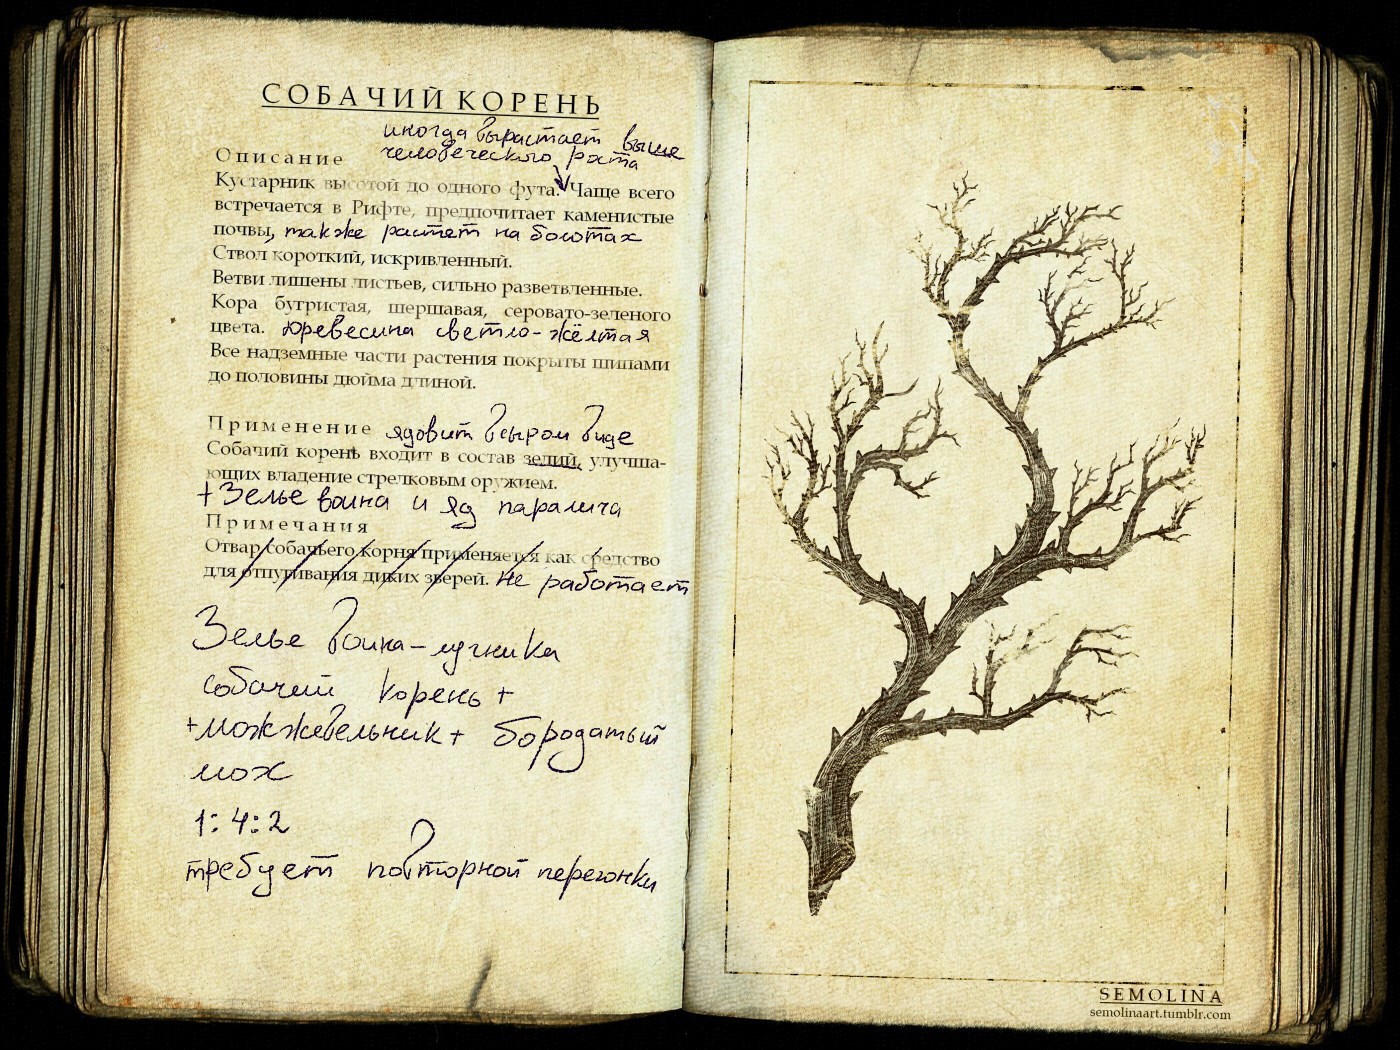 СОБАЧИЙ КОРЕНЬ
иногда вырастает выше
человеческого роста
Описание
Кустарник высотой до одного фута. Чаще всего
встречается в Рифте, предпочитает каменистые
почвы, также растет на болотах
Ствол короткий, искривленный.
Ветви лишены листьев, сильно разветвленные.
Кора бугристая, шершавая, серовато-зеленого
цвета. Древесина светло-жёлтая
Все надземные части растения покрыты шипами
до половины дюйма длиной.
Применение ядовит в сыром виде
Собачий корень входит в состав зелий, улучша-
ющих владение стрелковым оружием.
+ Зелье воина и яд паралича
Примечания
Отвар собачьего корня применяется как средство
для отпугивания диких зверей. не работает
Зелье воина-лучника
собачий корень +
+можжевельник+ бородатый
мох
1:4:2
требует повторной перегонки
SEMOLINA
semolinaart.tumblr.com